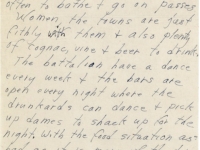 often to bathe & go on passes
Women, the towns are just
filthy with them & also plenty
of cognac, vine & beer to drink.
The battalian have a dance
every week & the bars are
open every night where the
drunkards can dance & pick
up dames to shack up for the
night. With the food situation as